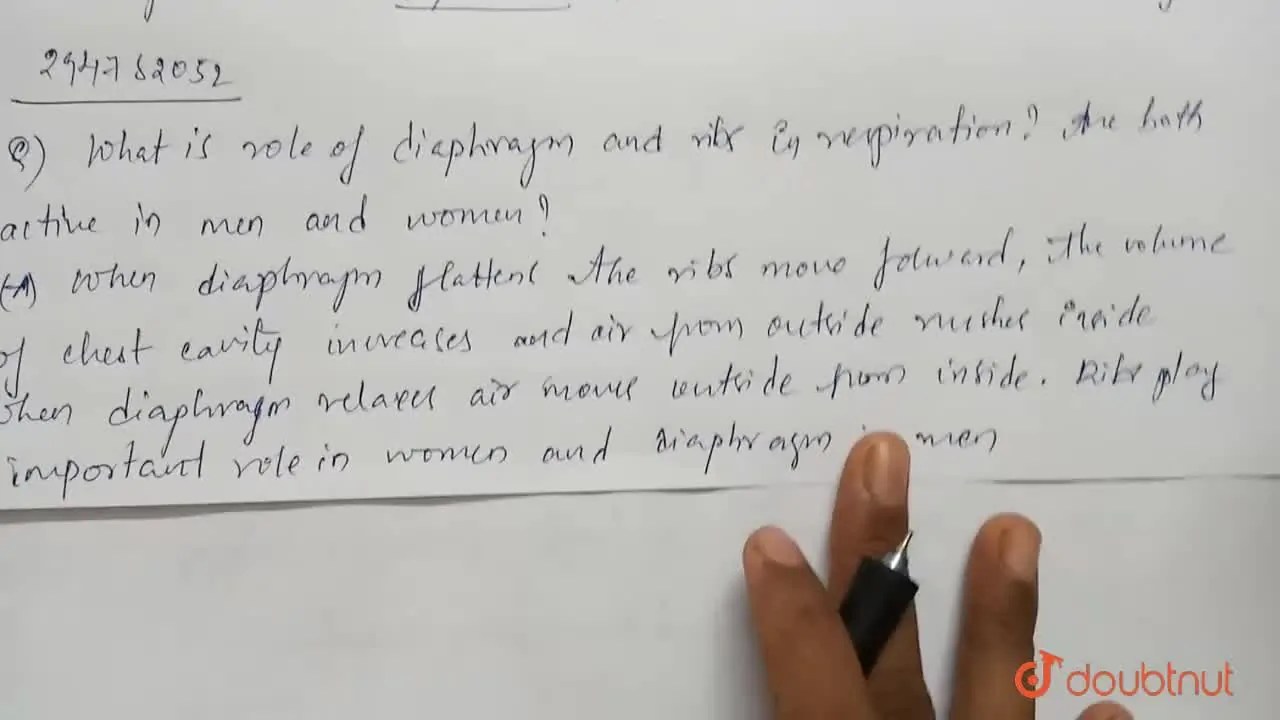 294752052
Q) What is role of diaphragm and ribs in respiration? Are both
active in men and women?
(A) When diaphragm flattens the ribs move forward, the volume
of chest cavity increases and air from outside rushes inside
when diaphragm relaxes air moves outside from inside. Ribs play
important role in women and diaphragm men
doubtnut